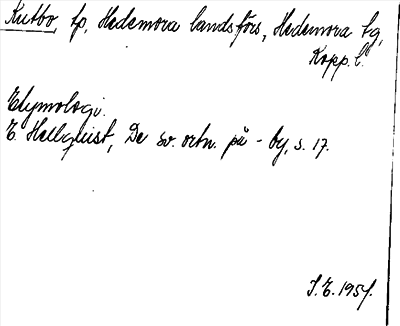 Kutbo, tp, Hedemora landsförs, Hedemora tg,
Kopp. l.
Etymologi.
E. Hellquist, De sv. ortn. på - by, s. 17.
S.E. 1954.